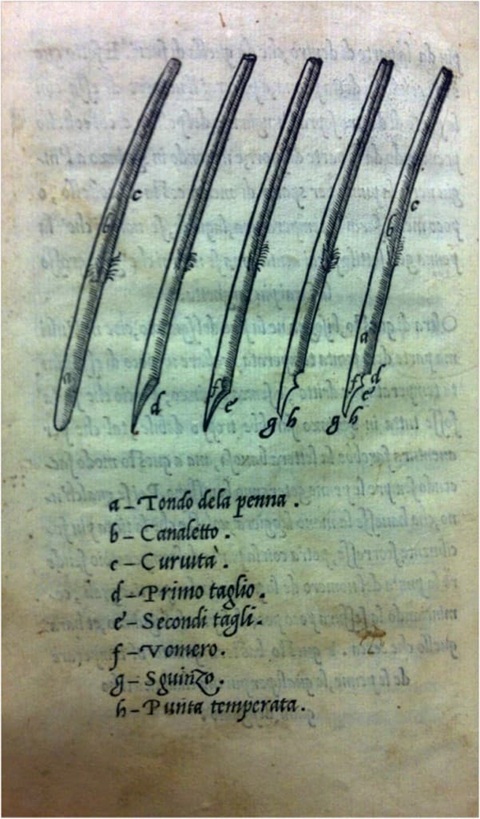 c
b
a
d
f
e
g
h
c
b
a
f
d
e
g
h
a – Tondo dela penna .
b – Canaletto .
c – Curuità .
d – Primo taglio .
e – Secondi tagli .
f – Vomero .
g – Sguinzo .
h – Punta temperata .